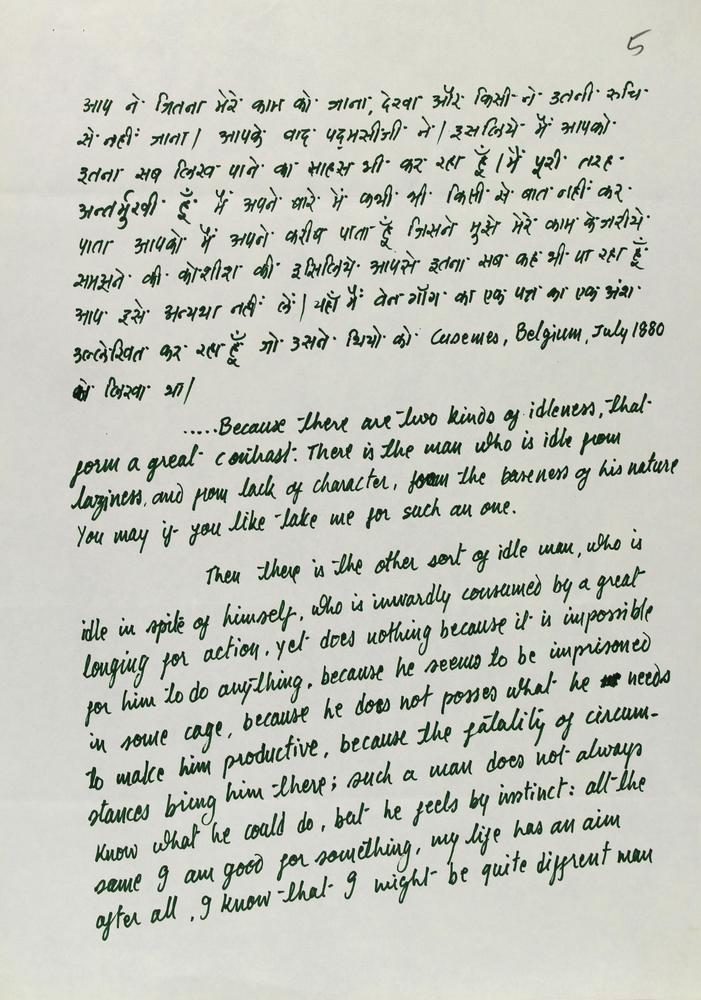 5
आप ने जितना मेरे काम को जाना, देखा और किसी ने उतनी रुचि
से नहीं जाना। आपके बाद पद्मसीजी ने। इसलिये मैं आपको
इतना सब लिख पाने का साहस भी कर रहा हूँ। मैं पूरी तरह
अन्तर्मुखी हूँ मैं अपने बारे में कभी भी किसी से बात नहीं कर
पाता आपको मैं अपने करीब पाता हूँ जिसने मुझे मेरे काम के जरीये
समझने की कोशीश की इसिलिये आपसे इतना सब कह भी पा रहा हूँ
आप इसे अन्यथा नहीं लें। यहाँ मैं वेन गॉग का एक पत्र का एक अंश
उल्लेखित कर रहा हूँ जो उसने थियो को Cusemes, Belgium, July 1880
को लिखा था।
.....Because there are two kinds of idleness, that
form a great contrast. There is the man who is idle from
laziness, and from lack of character, from the baseness of his nature
You may if you like take me for such an one.
Then there is the other sort of idle man, who is
idle in spite of himself, who is inwardly consumed by a great
longing for action, yet does nothing because it is impossible
for him to do anything, because he seems to be imprisoned
in some cage, because he does not posses what he needs
to make him productive, because the fatality of circum-
stances bring him there; such a man does not always
know what he could do, but he feels by instinct: all the
same I am good for something, my life has an aim
after all, I know that I might be quite diffrent man